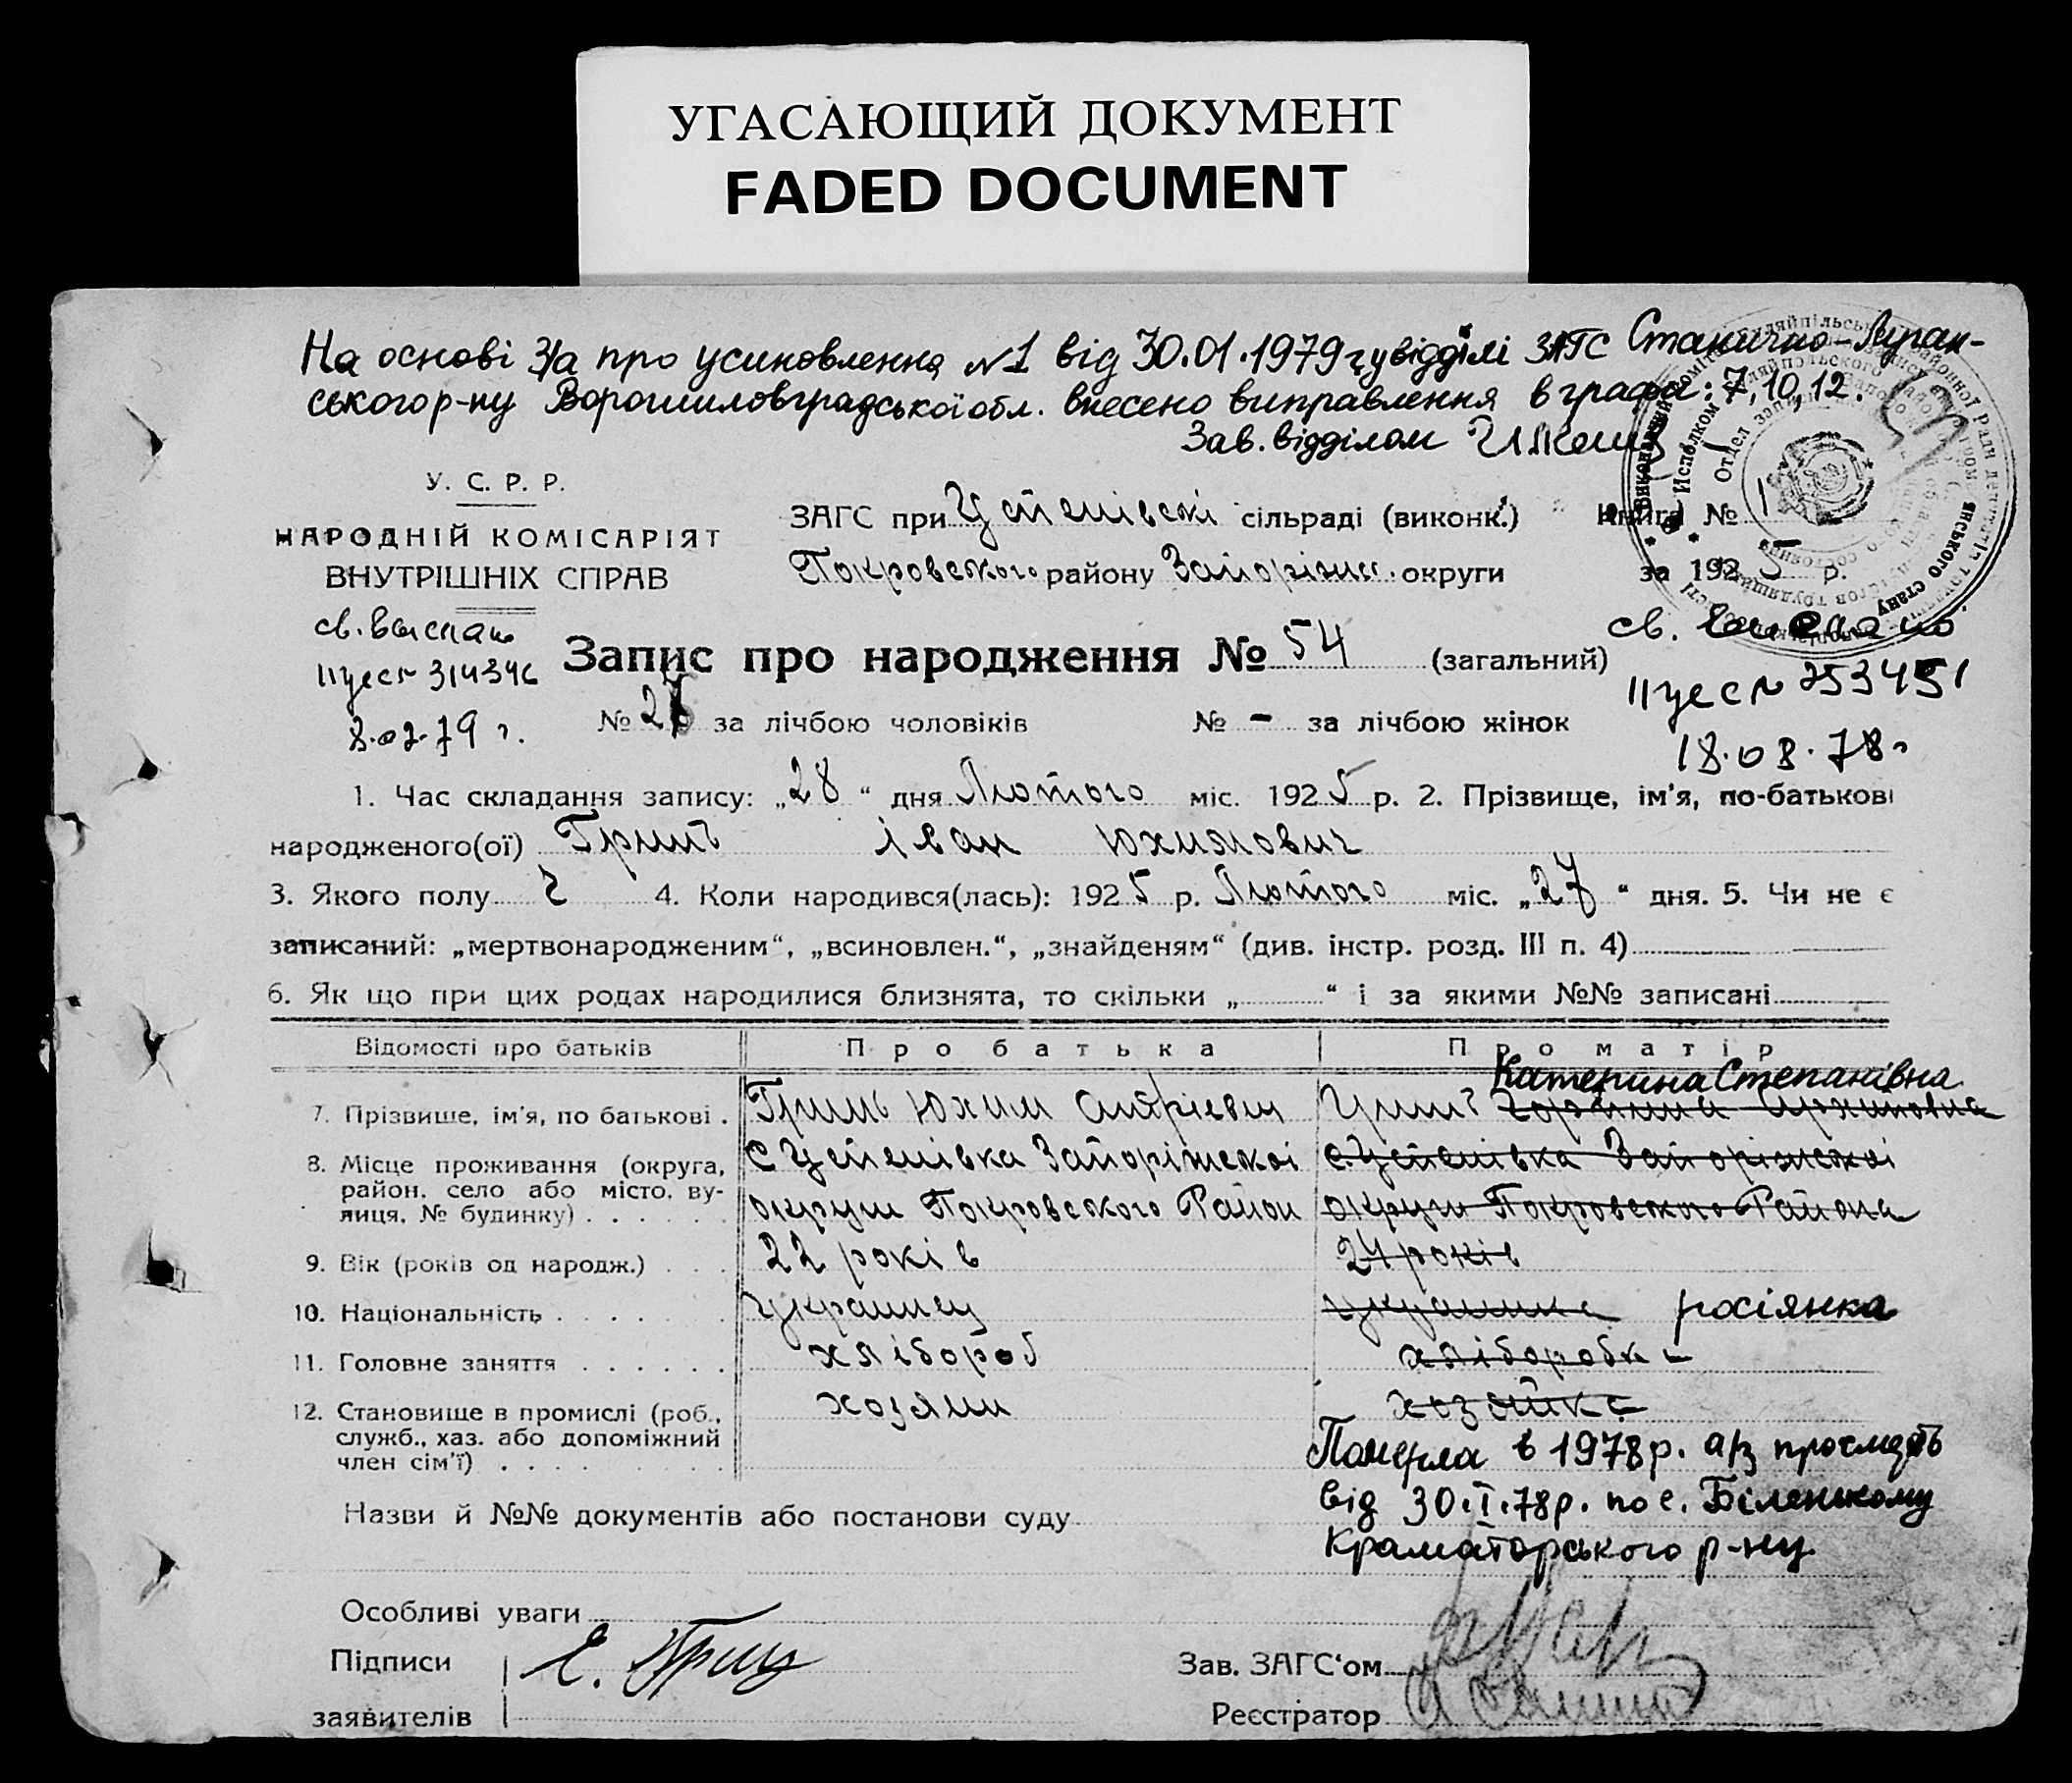 УГАСАЮЩИЙ ДОКУМЕНТ
FADED DOCUMENT
На основі З/а про усиновлення №1 від 30.01.1979 р. у відділі ЗАГС Станично-Луган-
ського р-ну Ворошиловградської обл. внесено виправлення в графа: 7, 10, 12.
Зав. відділом
У. С. Р. Р.
НАРОДНІЙ КОМІСАРІЯТ
ВНУТРІШНІХ СПРАВ
ЗАГС при Успенівскі сільраді (виконк.)
Книга № 1
Покровского району Запоріжс. округи
за 1925 р.
св. выслано
II уес № 314346
8.02.79 г.
св. выслано
II уес № 253451
18.08.78 г
Запис про народження № 54 (загальний)
№ 27 за лічбою чоловіків № - за лічбою жінок
1. Час складання запису: „28“ дня Лютого міс. 1925 р. 2. Прізвище, ім'я, по-батькові
народженого(ої) Гринь Іван Юхимович
3. Якого полу ч 4. Коли народився(лась): 1925 р. Лютого міс. „27“ дня. 5. Чи не є
записаний: „мертвонародженим“, „всиновлен.“, „знайденям“ (див. інстр. розд. III п. 4)
6. Як що при цих родах народилися близнята, то скільки „ “ і за якими №№ записані
Відомості про батьків Про батька Про матір
Катерина Степанівна
7. Прізвише, ім'я, по батькові . Гринь Юхим Гринь
8. Місце проживання (округа, с Успенівка Запоріжскої с. Успенівка Запоріжскої
район, село або місто, ву-
лиця, № будинку) . . . . . . округи Покровского Район округи Покровского Района
9. Вік (років од народж.) . . . 22 років 24 років
10. Національність . . . . . . . украинец украинка росіянка
11. Головне заняття . . . . . . хлібороб хліборобка
12. Становище в промислі (роб., хозяин хозяйка
служб., хаз. або допоміжний
член сім'ї) . . . . . . . . .
Померла в 1978 р. а/з про смерть
від 30.I.78 р. по с. Біленькому
Краматорського р-ну
Назви й №№ документів або постанови суду
Особливі уваги
Підписи
заявителів
Е. Гриц
Зав. ЗАГС'ом
Реєстратор